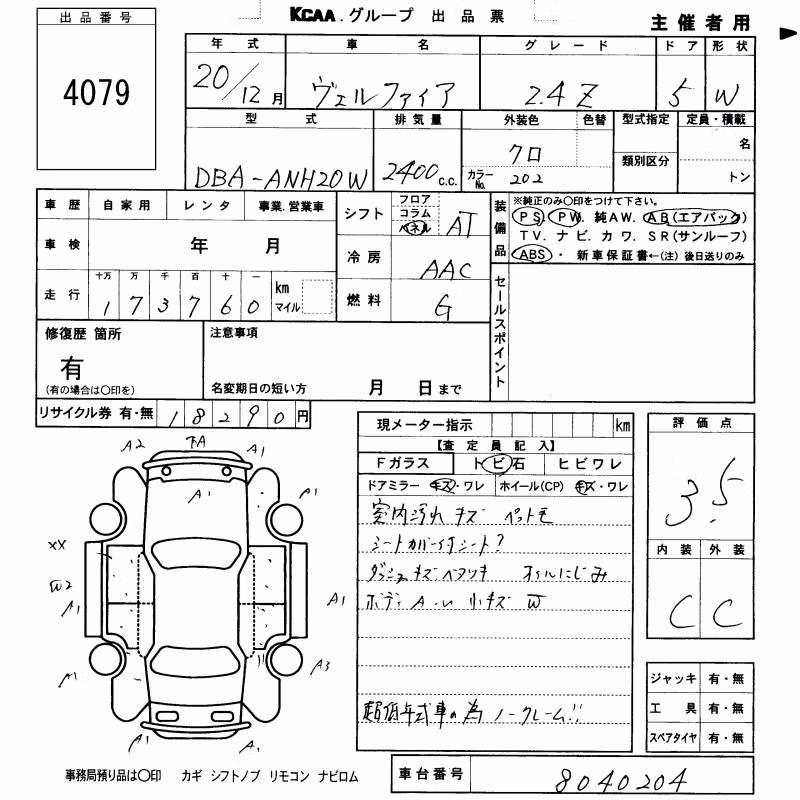 KCAA.グループ 出品票
主催者用
出品番号
4079
年式 車名 グレード ドア 形状
20/12月 ヴェルファイア 2.4Z 5 W
型式 排気量 外装色 色替 型式指定 定員・積載
DBA-ANH20W 2400c.c. クロ 類別区分 名
カラーNo. 202 トン
車歴 自家用 レンタ 事業.営業車
シフト フロア コラム パネル AT
装備品
※純正のみ○印をつけて下さい。
PS PW. 純AW. AB(エアバック)
TV. ナビ. カワ. SR(サンルーフ)
ABS・ 新車保証書←(注)後日送りのみ
車検 年 月
冷房 AAC
走行 十万 万 千 百 十 一
173760 km マイル
燃料 G
セールスポイント
修復歴 箇所
有
(有の場合は○印を)
注意事項
名変期日の短い方 月 日まで
リサイクル券 有・無 18290円
現メーター指示 km
【査定員記入】
Fガラス トビ石 ヒビワレ
ドアミラー キズ・ワレ ホイール(CP) キズ・ワレ
室内汚れ キズ ペット毛
シートカバー付シート?
ダッシュキズベタツキ オイルにじみ
ボディA・U 小キズ W
超低年式車の為 ノークレーム!!
評価点
3.5
内装 外装
C C
A2 A1
A1
A1
XX
W2
A1 A1
A1 A3
A1 A1
ジャッキ 有・無
工具 有・無
スペアタイヤ 有・無
事務局預り品は○印 カギ シフトノブ リモコン ナビロム
車台番号 8040204